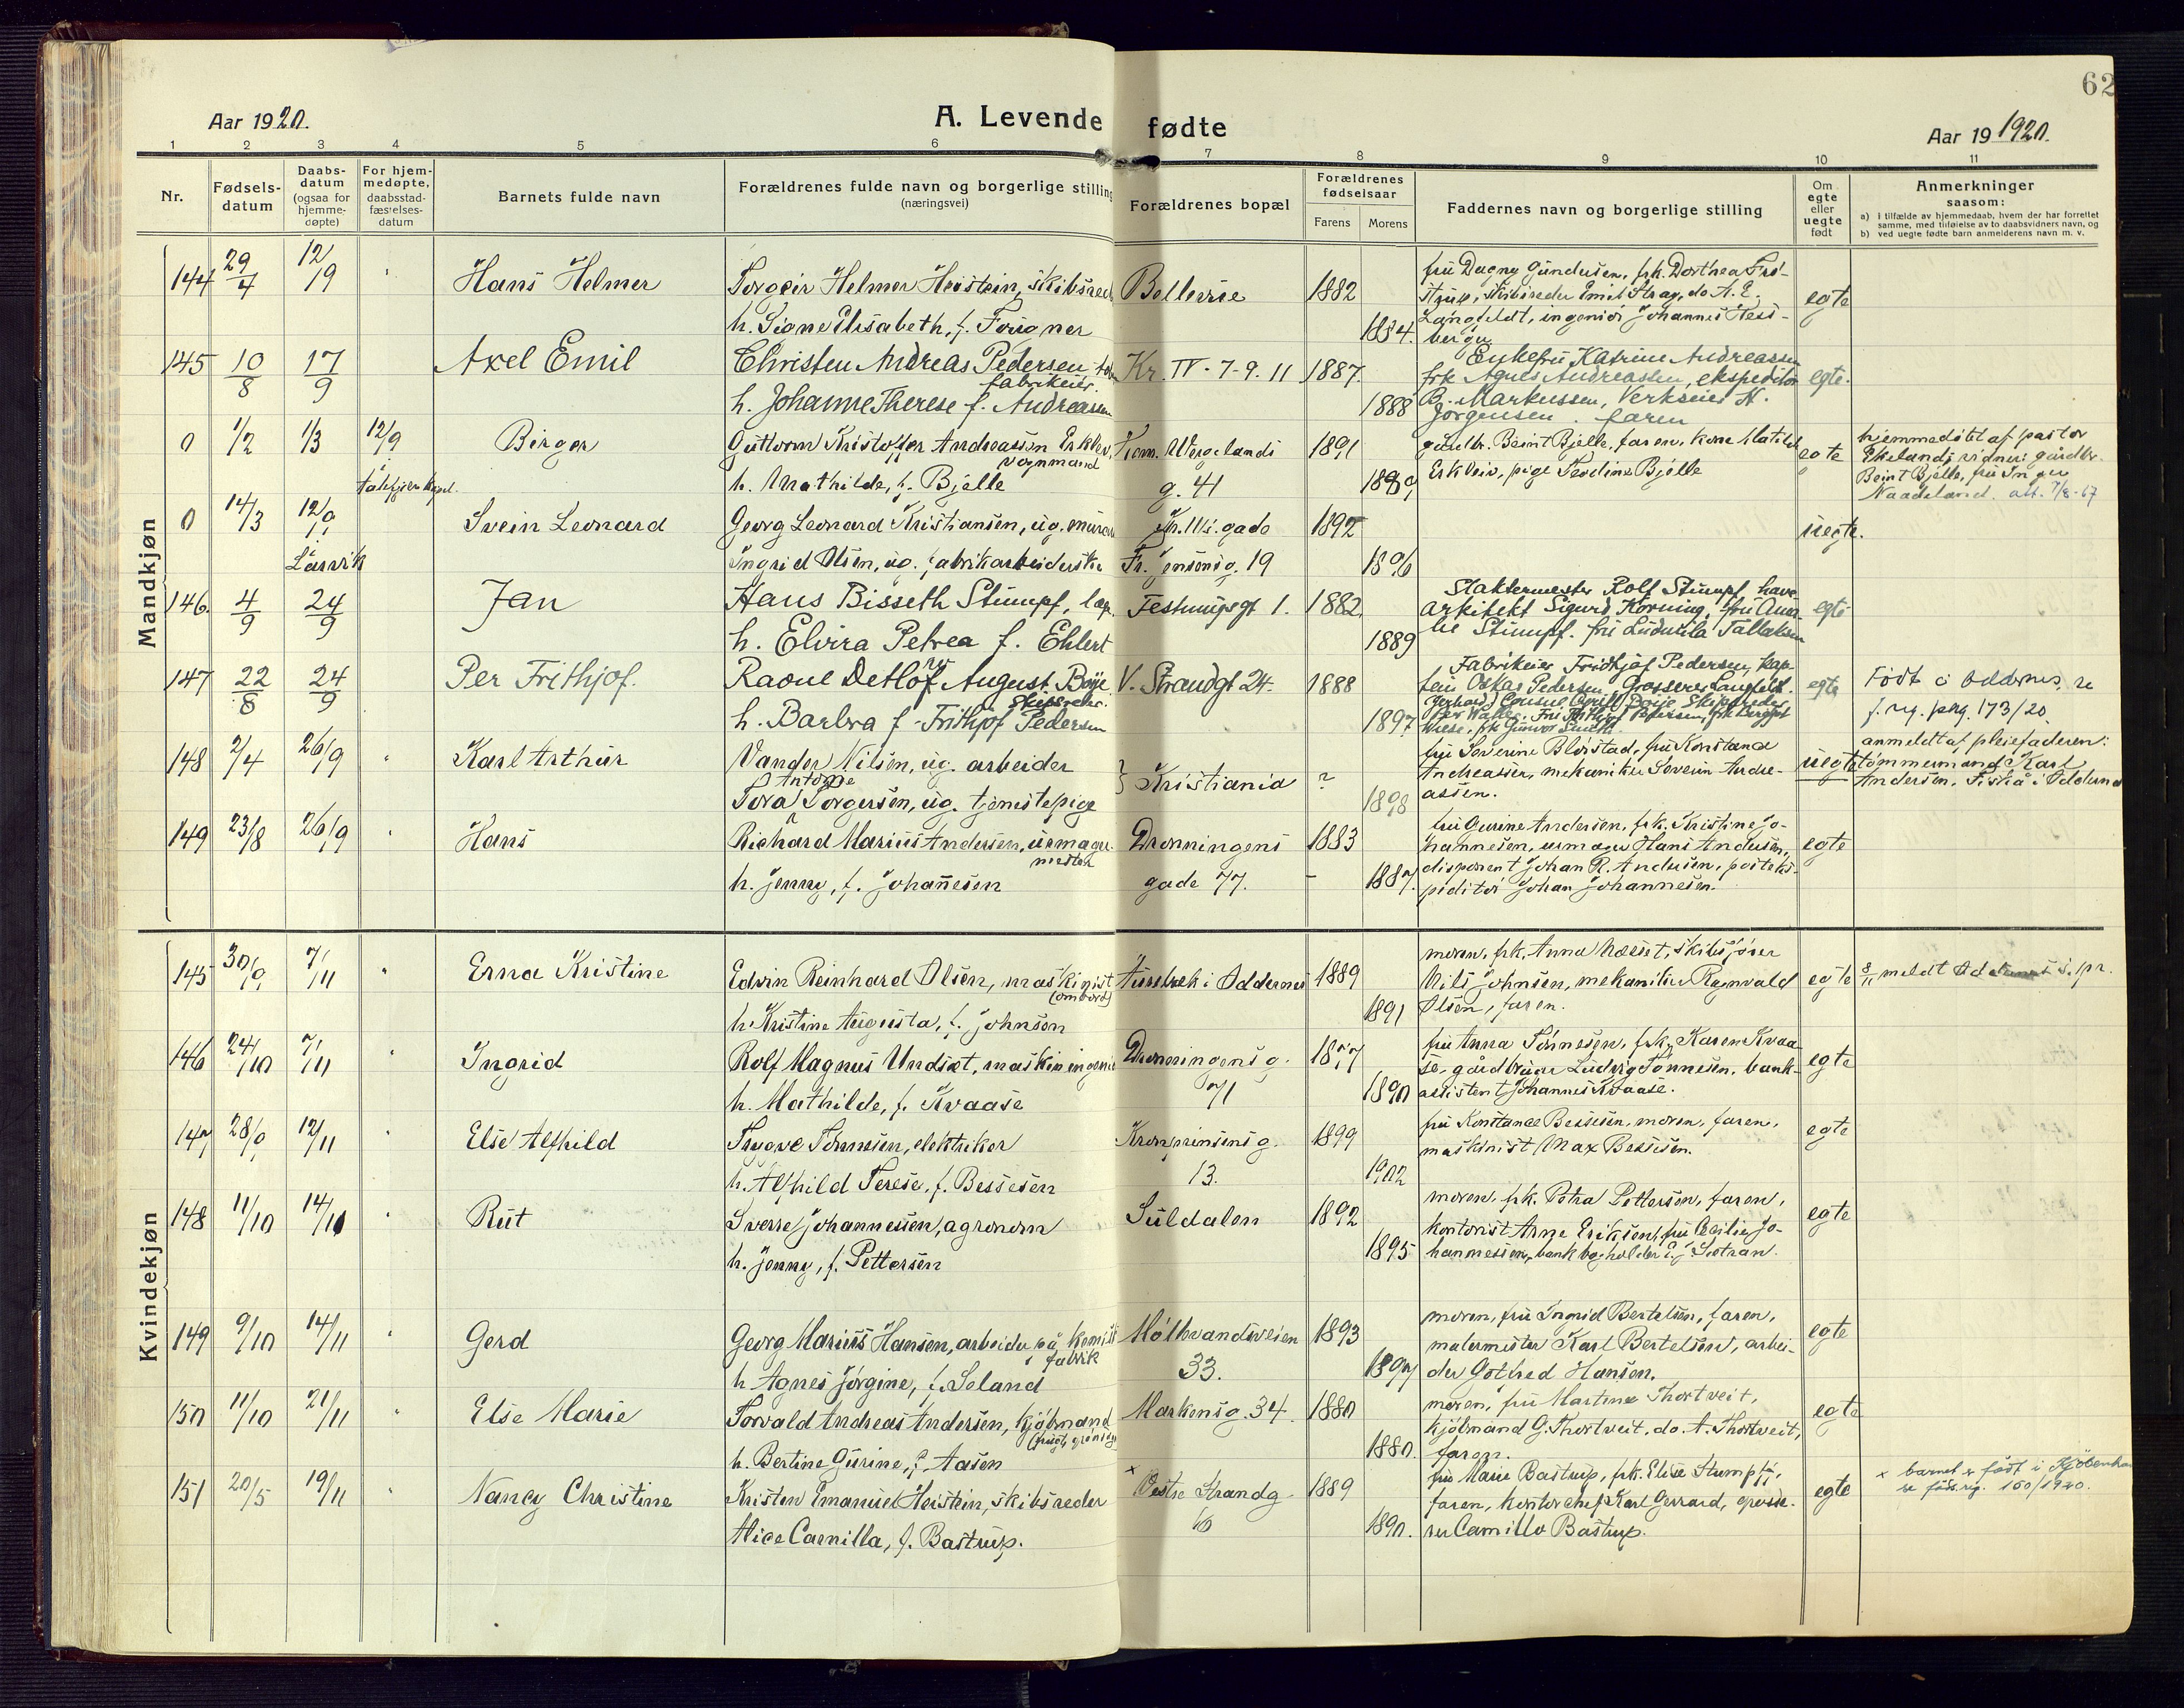 62
Aar 1920.
A. Levende fødte
Aar 19 1920.
1 2 3 4 5 6 7 8 9 10 11
Nr.
Fødsels-
datum
Daabs-
datum
(ogsaa for
hjemme-
døpte)
For hjem-
medøpte,
daabsstad-
fæstelses-
datum
Barnets fulde navn
Forældrenes fulde navn og borgerlige stilling
(næringsvei)
Forældrenes bopæl
Forældrenes
fødselsaar
Farens Morens
Faddernes navn og borgerlige stilling
Om
egte
eller
uegte
født
Anmerkninger
saasom:
a) i tilfælde av hjemmedaab, hvem der har forrettet
samme, med tilføielse av to daabsvidners navn, og
b) ved uegte fødte barn anmelderens navn m. v.
Mandkjøn
144 29/4 12/9 Hans Helmer
Torgeir Helmer Heistein, skibsred
h. Signe Elisabeth, f. Fougner
Bellevue 1882 1884.
fru Dagny Gundersen, frk. Dorthea Frø-
strup, skibsreder Emil Stray, do A. E.
Langfeldt, ingeniør Johannes Hess-
berger
egte
145 10/8 17/9 Axel Emil
Christen Andreas Pedersen
fabrikeier.
h. Johanne Therese f. Andreassen
Kr. IV. 7-9. 11 1887. 1888
Enkefru Katrine Andreassen
frk Agnes Andreassen, ekspeditør
B. Markussen, Verkseier N.
Jørgensen. faren
egte.
0 1/2 1/3 12/9 Birger
Guttorm Kristoffer Andreassen Eskhev,
vognmand
h. Mathilde, f. Bjelle
Hom. Wergelands
g. 41
1891
gårdbr. Beint Bjelle, faren, kone Matild
Eskleiv, pige Tesdine Bjelle
egte
hjemmedøbt af pastor
Ekeland; vidner: gårdbr.
Beint Bjelle, fru Inger
Naadeland. att. 7/8-67
0 14/3 12/9 Svein Leonard
Larvik
Georg Leonard Kristiansen, ug. murer
Ingrid Olsen, ug. fabrikarbeiderske
Kr. IIIs. gade
Fr. Jensensg. 19
1892 1896
uegte.
146. 4/9 24/9 Jan
Hans Bisseth Stumpf, læge.
h. Elvira Petrea f. Ehlert
Festningsgt 1. 1882, 1889
Slaktermester Rolf Stumpf, have
arkitekt Sigurd Korning, fru Ama
lie Stumpf. fru Ludmila Tallaksen
egte
147 22/8 24/9 Per Frithjof.
Raoul Detlof August Boije
Skipsreder.
h. Barbra f. Frithjof Pedersen
V. Strandgt 24. 1888 1897
Fabrikeier Fridhjof Pedersen, kap-
tein Oskar Pedersen, Grosserer Langfeldt.
egte
Født i Oddernes, se
f. reg. pkg. 173/20.
148 2/4 26/9 Karl Arthur
Vander Nilsen, ug. arbeider
Antonie
Tora Torgersen, ug. tjenestepige
Kristiania ? 1898
fru Severine Blørstad, fru Konstance
Andreassen, mekaniker Severin Andre-
assen.
uegte
anmeldt af pleiefaderen:
tømmermand Karl
Andersen, Fiskå i Oddernes
149 23/8 26/9 Hans
Richard Marius Andersen, urmager-
mester
h. Jenny, f. Johannesen
Dronningens
gade 77.
1883 1887.
fru Gurine Andersen, frk. Kristine Jo-
hannesen, urmager Hans Andersen,
disponent Johan R. Andersen, posteks-
peditør Johan Johannesen.
egte
Kvindekjøn
145 30/9 7/11 Erna Kristine
Edvin Reinhard Olsen, maskinist
(ombord)
h. Kristine Augusta, f. Johnsen
i Oddernes 1889 1891
moren, frk. Anna Næsset, skibsfører
Nils Johnsen, mekaniker Ragnvald
Olsen, faren.
egte
8/11 meldt Oddernes s. pr.
146 24/10 7/11 Ingrid
Rolf Magnus Undset, maskiningeniør
h. Mathilde, f. Kvaase
Dronningensg.
71
1877 1890
fru Anna Tønnesen, frk. Karen Kvaa-
se, gårdbruger Ludvig Tønnesen, bank-
assistent Johannes Kvaase.
egte
147 28/9 12/11 Else Alfhild
Trygve Tønnesen, elektriker
h. Alfhild Terese, f. Bessesen
Kronprinsensg.
13.
1899 1902
fru Konstance Bessesen, moren, faren,
maskinist Max Bessesen.
egte
148 11/10 14/11 Rut
Sverre Johannessen, agronom
h. Jenny, f. Pettersen
Suldalen 1892 1895
moren, frk. Petra Pettersen, faren,
kontorist Arne Eriksen, fru Cecilie Jo-
hannessen, bankbogholder
egte
149 9/10 14/11 Gerd
Georg Marius Hansen, arbeider på kemisk
fabrik
h Agnes Jørgine, f. Seland
Møllevandsveien
33.
1893 1897
moren, fru Ingrid Bertelsen, faren,
malermester Karl Bertelsen, arbei-
der Gothred Hansen.
egte
150 11/10 21/11 Else Marie
Torvald Andreas Andersen, kjøbmand
h. Bertine Gurine, f. Aasen
Markensg. 34. 1880 1880.
moren, fru Martine Thortveit,
kjøbmand G. Thortveit, do. A. Thortveit,
faren.
egte
151 20/5 19/11 Nancy Christine
Kristen Emanuel Heistein, skibsreder
Alice Camilla, f. Bastrup.
x Østre Strandg.
10
1889 1890.
fru Marie Bastrup, frk. Elise Stumpff,
faren, kontorchef Karl Gerrard, grosse-
rer Camillo Bastrup.
egte
x barnet er født i Kjøbenhavn
se føds.reg. 160/1920.